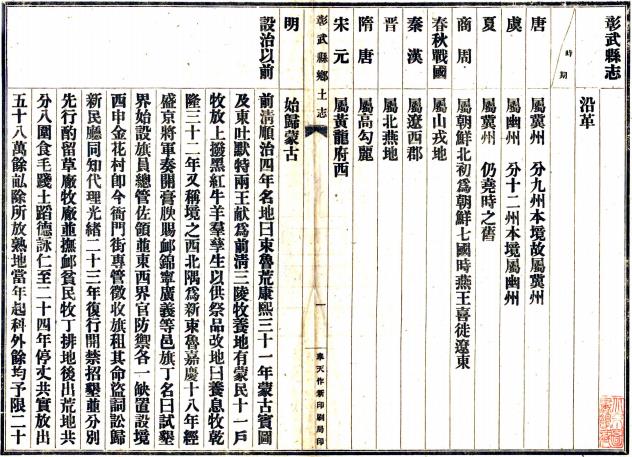 彰武縣志
沿革
時期
唐 屬冀州 分九州本境故屬冀州
虞 屬幽州 分十二州本境屬幽州
夏 屬冀州 仍堯時之舊
商周 屬朝鮮北初為朝鮮七國時燕王喜徙遼東
春秋戰國 屬山戎地
秦漢 屬遼西郡
晋 屬北燕地
隋唐 屬高勾麗
宋元 屬黃龍府西
彰武縣鄉土志
一
奉天作新印刷局印
明 始歸蒙古
設治以前 前清順治四年名地曰東魯荒康熙三十一年蒙古賓圖
及東吐默特兩王献為前清三陵牧養地有蒙民十一戶
牧放上撥黑紅牛羊羣孳生以供祭品改地曰養息牧乾
隆三十二年又稱境之西北隅為新東魯嘉慶十八年經
盛京將軍奏開膏腴賜邮錦寧廣義等邑旗丁名曰試墾
界始設旗員總管佐領並東西界官防禦各一缺置設境
西申金花村即今衙門街專管徵收旗租其命盜詞訟歸
新民廳同知代理光緒二十三年復行開禁招墾並分別
先行酌留草廠牧廠並撫邮貧民牧丁排地後出荒地共
分八圍食毛踐土蹈德詠仁至二十四年停丈共實放出
五十八萬餘畆除所放熟地當年起科外餘均予限二十